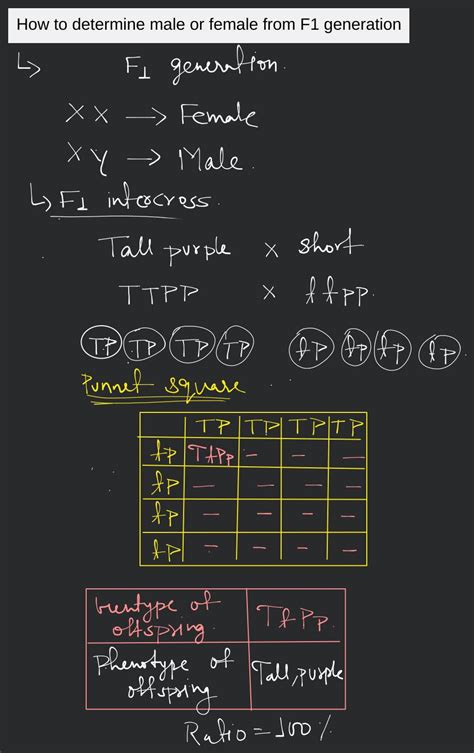 How to determine male or female from F1 generation
↳ F1 generation.
XX → Female
XY → Male.
↳ F1 intercross.
Tall purple x short
TTPP x ttpp.
TP TP TP TP tp tp tp tp
Punnet square
TP TP TP TP
tp TtPp - - -
tp - - - -
tp - - - -
tp - - - -
Genotype of offspring. TtPp.
Phenotype of offspring Tall, purple
Ratio = 100%